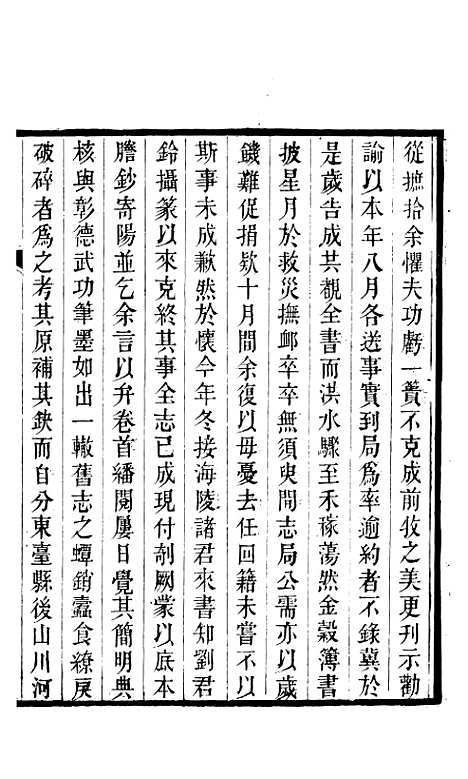 從摭拾余懼夫功虧一簣不克成前牧之美更刊示勸
諭以本年八月各送事實到局爲率逾約者不錄冀於
是歲告成共覩全書而洪水驟至禾稼蕩然金穀簿書
披星月於救災撫邮卒卒無須臾閒志局公需亦以歲
饑難促捐欵十月間余復以毋憂去任回籍未嘗不以
斯事未成歉然於懷今年冬接海陵諸君來書知劉君
鈴攝篆以來克終其事全志已成現付剞劂蒙以底本
膽鈔寄陽並乞余言以弁卷首繙閱屢日覺其簡明典
核與彰德武功筆墨如出一轍舊志之蟫銷蠹食繚戾
破碎者爲之考其原補其鈌而自分東臺縣後山川河